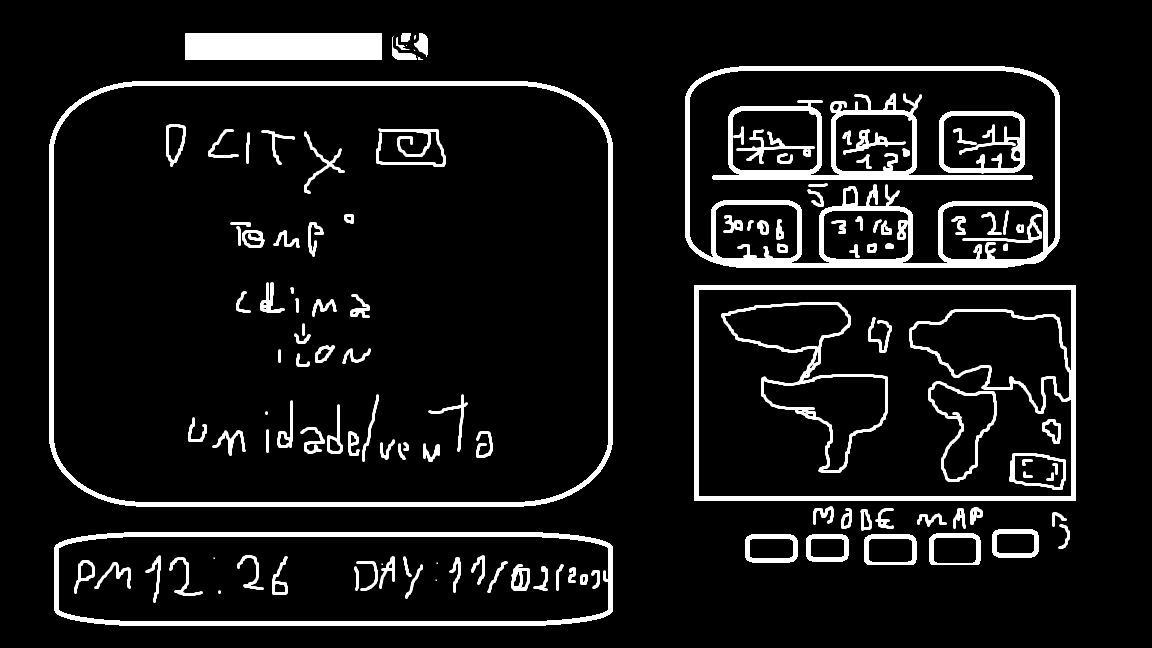 CITY
Temp°
clima
icon
umidade/vento
PM 12:26 DAY:11/02/2024
TODAY
15h 18h 21h
10° 13° 11°
5 DAY
30/08 31/08
22° 10° 15°
MODE MAP 5